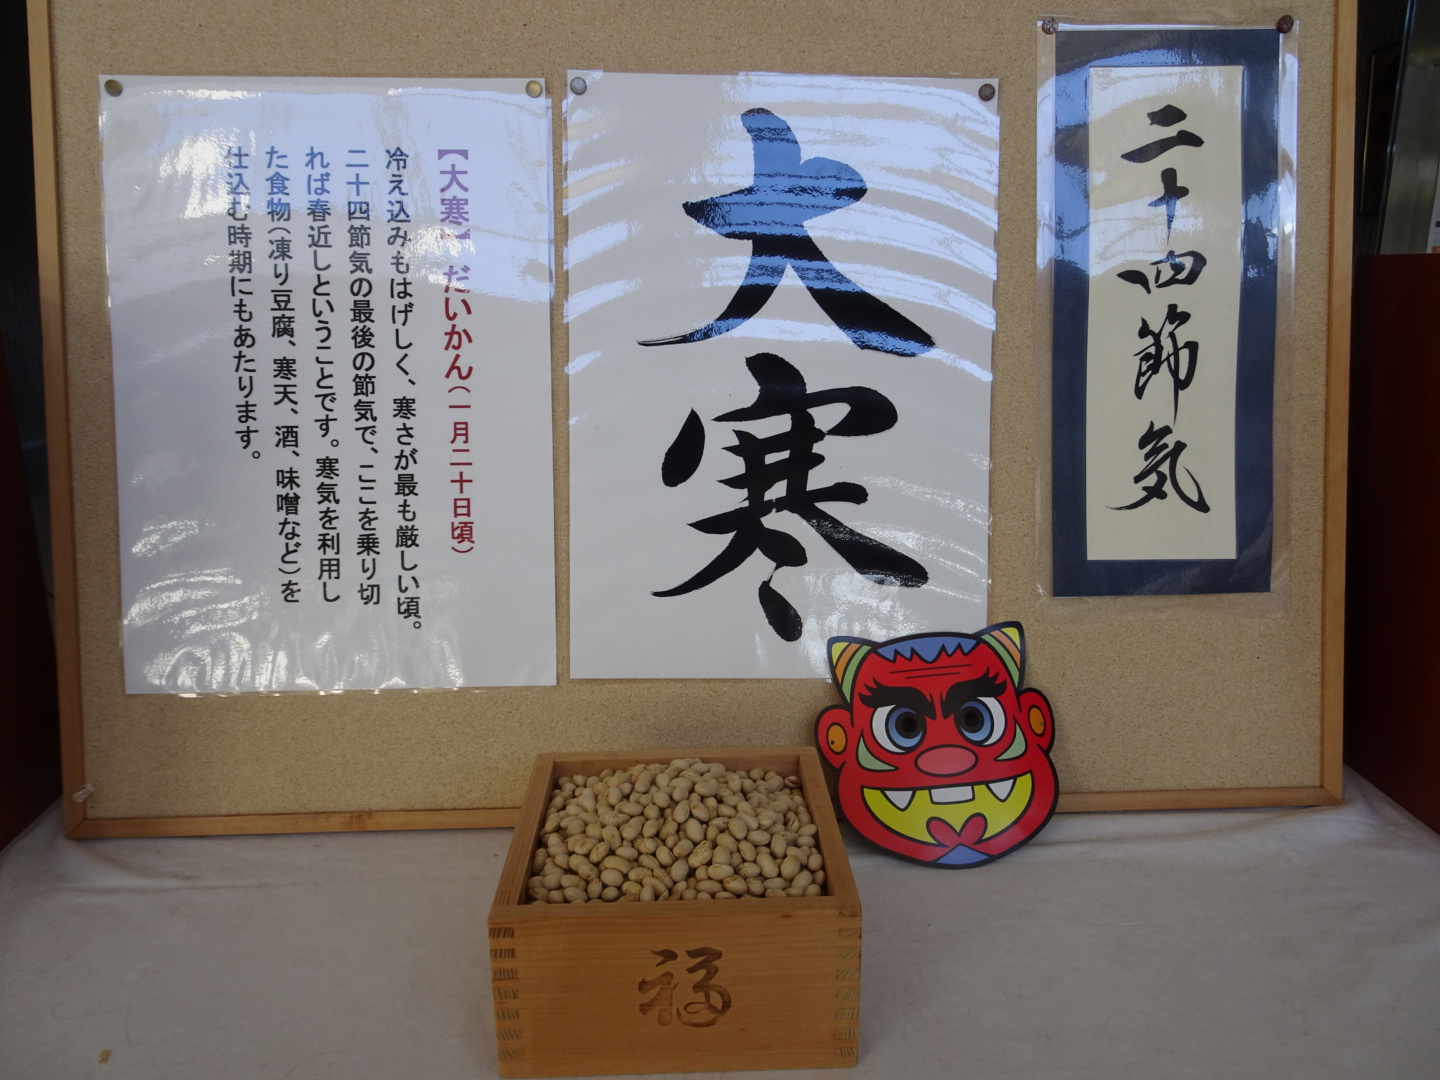 二十四節気
大寒
【大寒】だいかん(一月二十日頃)
冷え込みもはげしく、寒さが最も厳しい頃。
二十四節気の最後の節気で、ここを乗り切
れば春近しということです。寒気を利用し
た食物(凍り豆腐、寒天、酒、味噌など)を
仕込む時期にもあたります。
福